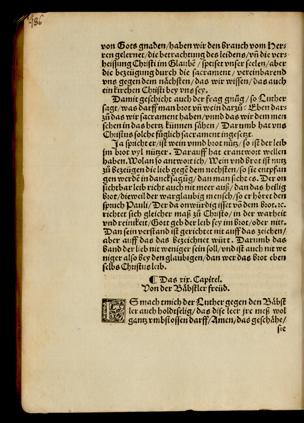 186
von Gots gnaden/ haben wir den brauch vom Her
ren gelernet/ die betrachtung des leidens/ vñ die ver
heissung Christi im Glaubē/ speiset vnser seelen/ aber
die bezeügung durch die sacrament/ vereinbarend
vns gegen dem nächsten/ das wir wissen/ das auch
ein kirchen Christi bey vns sey.
Damit geschicht auch der frag gnůg/ so Luther
sagt/ was darff man brot vñ wein darzů: Eben dar
zů das wir sacrament haben/ vnnd das wir dem men
schen in das hertz künnen sähen/ Darumb hat vns
Christus solche füglich sacrament ingesetzt.
Ja spicht er/ ist wein vnnd brot nütz/ so ist der leib
im brot vyl nützer. Darauff hat er antwort wellen
haben. Wolan so antwort ich/ Wein vnd brot ist nutz
zů bezeügen die lieb gegē dem nechsten/ so sie empfan
gen werdē in dancksagūg/ dan man sicht es. Der on
sichtbar leib richt auch nit meer auß/ dan das heilig
brot/ dieweil der warglaubig mensch/ so er höret den
spruch Pauli/ Der da onwürdig isset vō dem brot.ec.
richtet sich gleicher maß zů Christo/ in der warheit
vnd reinikeit/ Gott geb der leib sey im brot/ oder nit.
Dan sein verstand ist gerichtet nit auff das zeichen/
aber auff das das bezeichnet würt. Darumb das
band der lieb nit weniger sein soll/ vnd ist auch nit we
niger also bey den glaubigen/ dan wer das brot eben
selbs Christus leib.
¶ Das xix. Capitel.
Von der Bäbstler freüd.
ES mach tmich der Luther gegen den Bäbst
ler auch holdtselig/ das dise leer jre meß wol
gantz vmbstossen darff/ Amen/ das geschähe/
sie